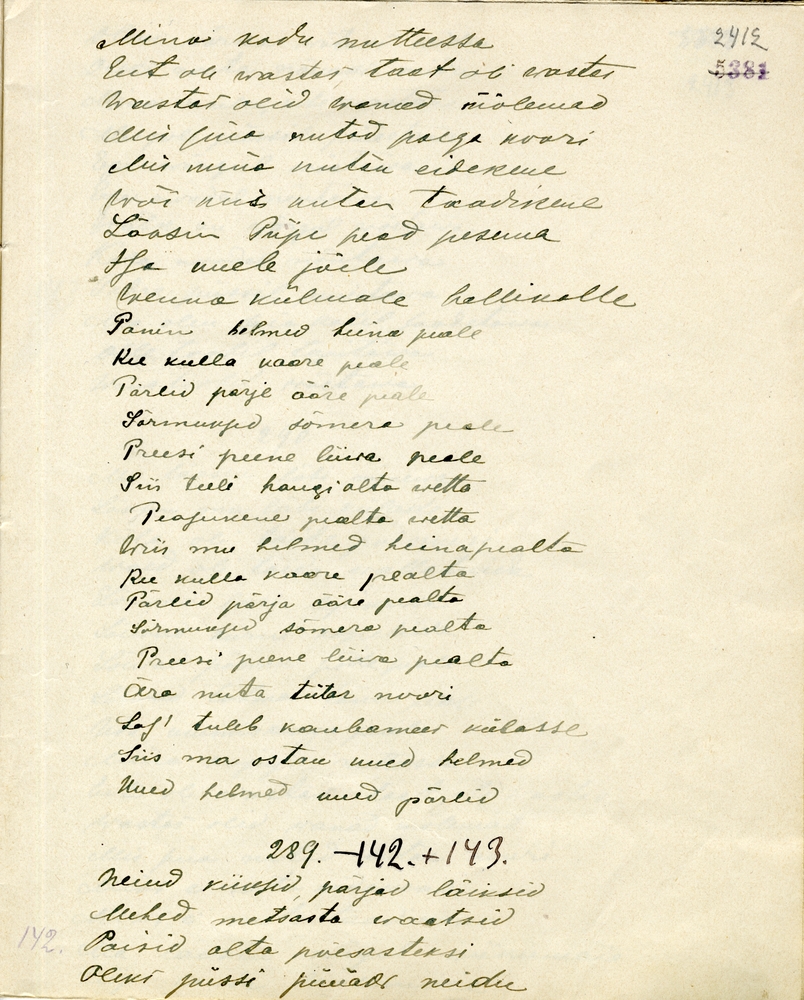 2412
5381
Mina kodu nutteessa
Eit oli wastas, taat oli wastas
Wastas olid wanad mõlemad
Mis sina nutad poega noori
Mis mina nutan eidekene
Wõi mis nutan taadikene
Läksin Piipe pead pesema
Isa uuele jõele
Wenna külmale hallikalle
Panin helmed heina peale
Kee kulla kaare peale
Pärlid pärje ääre peale
Sõrmuksed sõmera peale
Preesi peene liiwa peale
Siis tuli haugi alta wetta
Peasukene pealta wetta
Wiis mu helmed heina pealta
Kee kulla kaare pealta
Pärlid pärja ääre pealta
Sõrmuksed sõmera pealta
Preesi peene liiwa pealta
Ära nuta tütar noori
Las' tuleb kaubamees külasse
Siis ma ostan uued helmed
Uued helmed uued pärlid
289. -142. + 143.
Neiud kiiksid, pärjad läiksid
Mehed metsasta waatsid
142. Poisid alta põesasteksi
Oleks püssi püüaks neidu